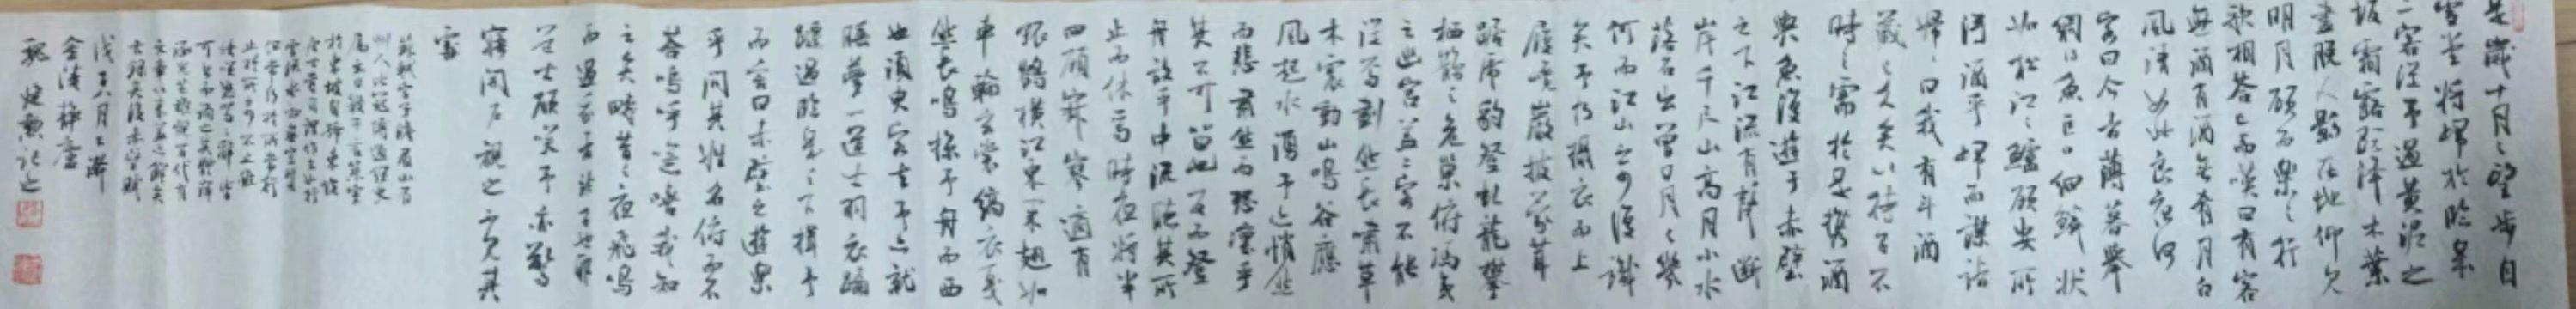 是歲十月之望步自
雪堂將歸於臨皋
二客從予過黃泥之
坂霜露既降木葉
盡脫人影在地仰見
明月顧而樂之行
歌相答已而嘆曰有客
無酒有酒無肴月白
風清如此良夜何
客曰今者薄暮舉
網得魚巨口細鱗狀
如松江之鱸顧安所
得酒乎歸而謀諸
婦婦曰我有斗酒
藏之久矣以待子不
時之需於是攜酒
與魚復遊于赤壁
之下江流有聲斷
岸千尺山高月小水
落石出曾日月之幾
何而江山不可復識
矣予乃攝衣而上
履巉巖披蒙茸
踞虎豹登虬龍攀
栖鶻之危巢俯馮夷
之幽宮蓋二客不能
從焉劃然長嘯草
木震動山鳴谷應
風起水涌予亦悄然
而悲肅然而恐凜乎
其不可留也反而登
舟放乎中流聽其所
止而休焉時夜將半
四顧寂寥適有
孤鶴橫江東來翅如
車輪玄裳縞衣戛
然長鳴掠予舟而西
也須臾客去予亦就
睡夢一道士羽衣蹁
躚過臨皋之下揖予
而言曰赤壁之遊樂
乎問其姓名俯而不
答嗚呼噫嘻我知
之矣疇昔之夜飛鳴
而過我者非子也耶
道士顧笑予亦驚
寤開戶視之不見其
處
蘇軾字子瞻眉山
金陵
記之